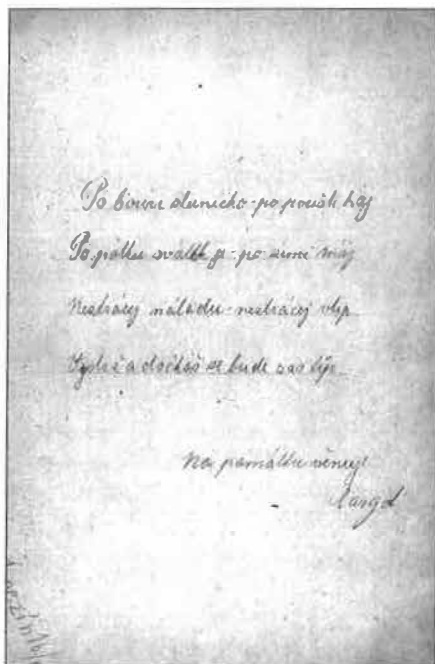 Po bouři sluníčko - po poušti háj
Po pátku svátek je - po zimě máj
Neztrácej náladu - neztrácej vtip
Vydrž a dočkáš se bude zas líp
Na památku věnuje